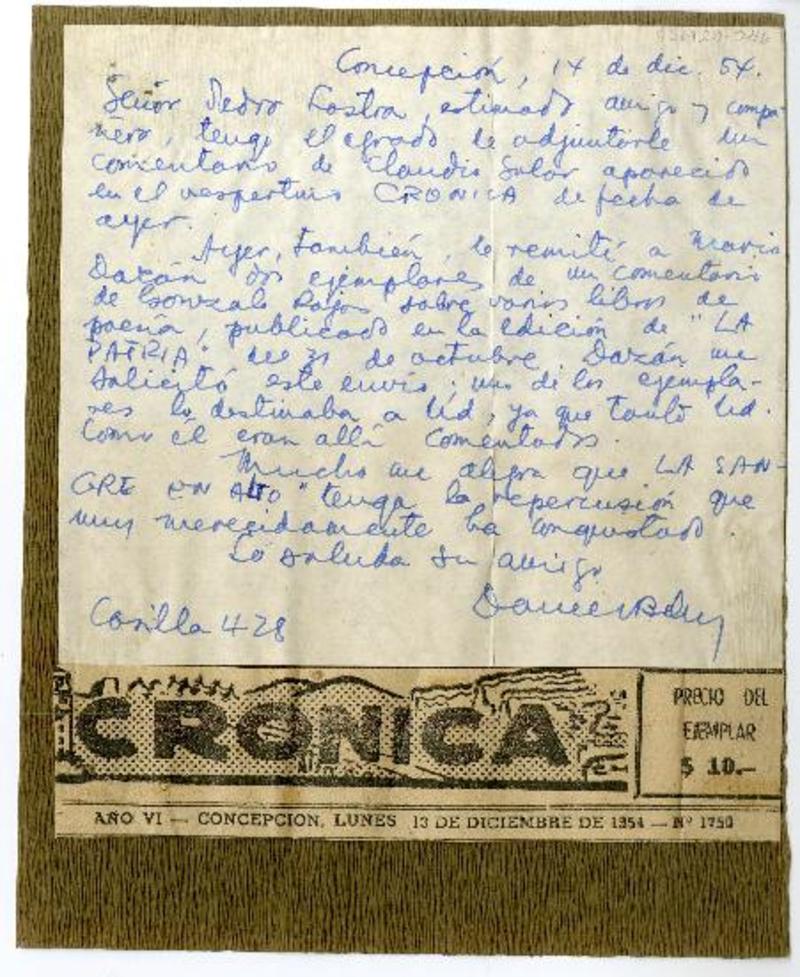 Concepción, 14 de dic. 54.
Señor Pedro Lastra, estimado amigo y compa-
ñero, tengo el agrado de adjuntarle un
comentario de Claudio Solar aparecido
en el vespertino CRONICA de fecha de
ayer.
Ayer, también, le remití a Mario
Dazán dos ejemplares de un comentario
de Gonzalo Rojas sobre varios libros de
poesía, publicado en la edición de "LA
PATRIA" del 31 de octubre. Dazán me
solicitó este envío; uno de los ejempla-
res lo destinaba a Ud, ya que tanto Ud.
como él eran allí comentados.
Mucho me alegra que LA SAN-
GRE EN ALTO" tenga la repercusión que
muy merecidamente ha conquistado.
Lo saluda su amigo
Casilla 428
CRONICA
PRECIO DEL
EJEMPLAR
$ 10.—
AÑO VI — CONCEPCION, LUNES 13 DE DICIEMBRE DE 1954 — Nº 1750